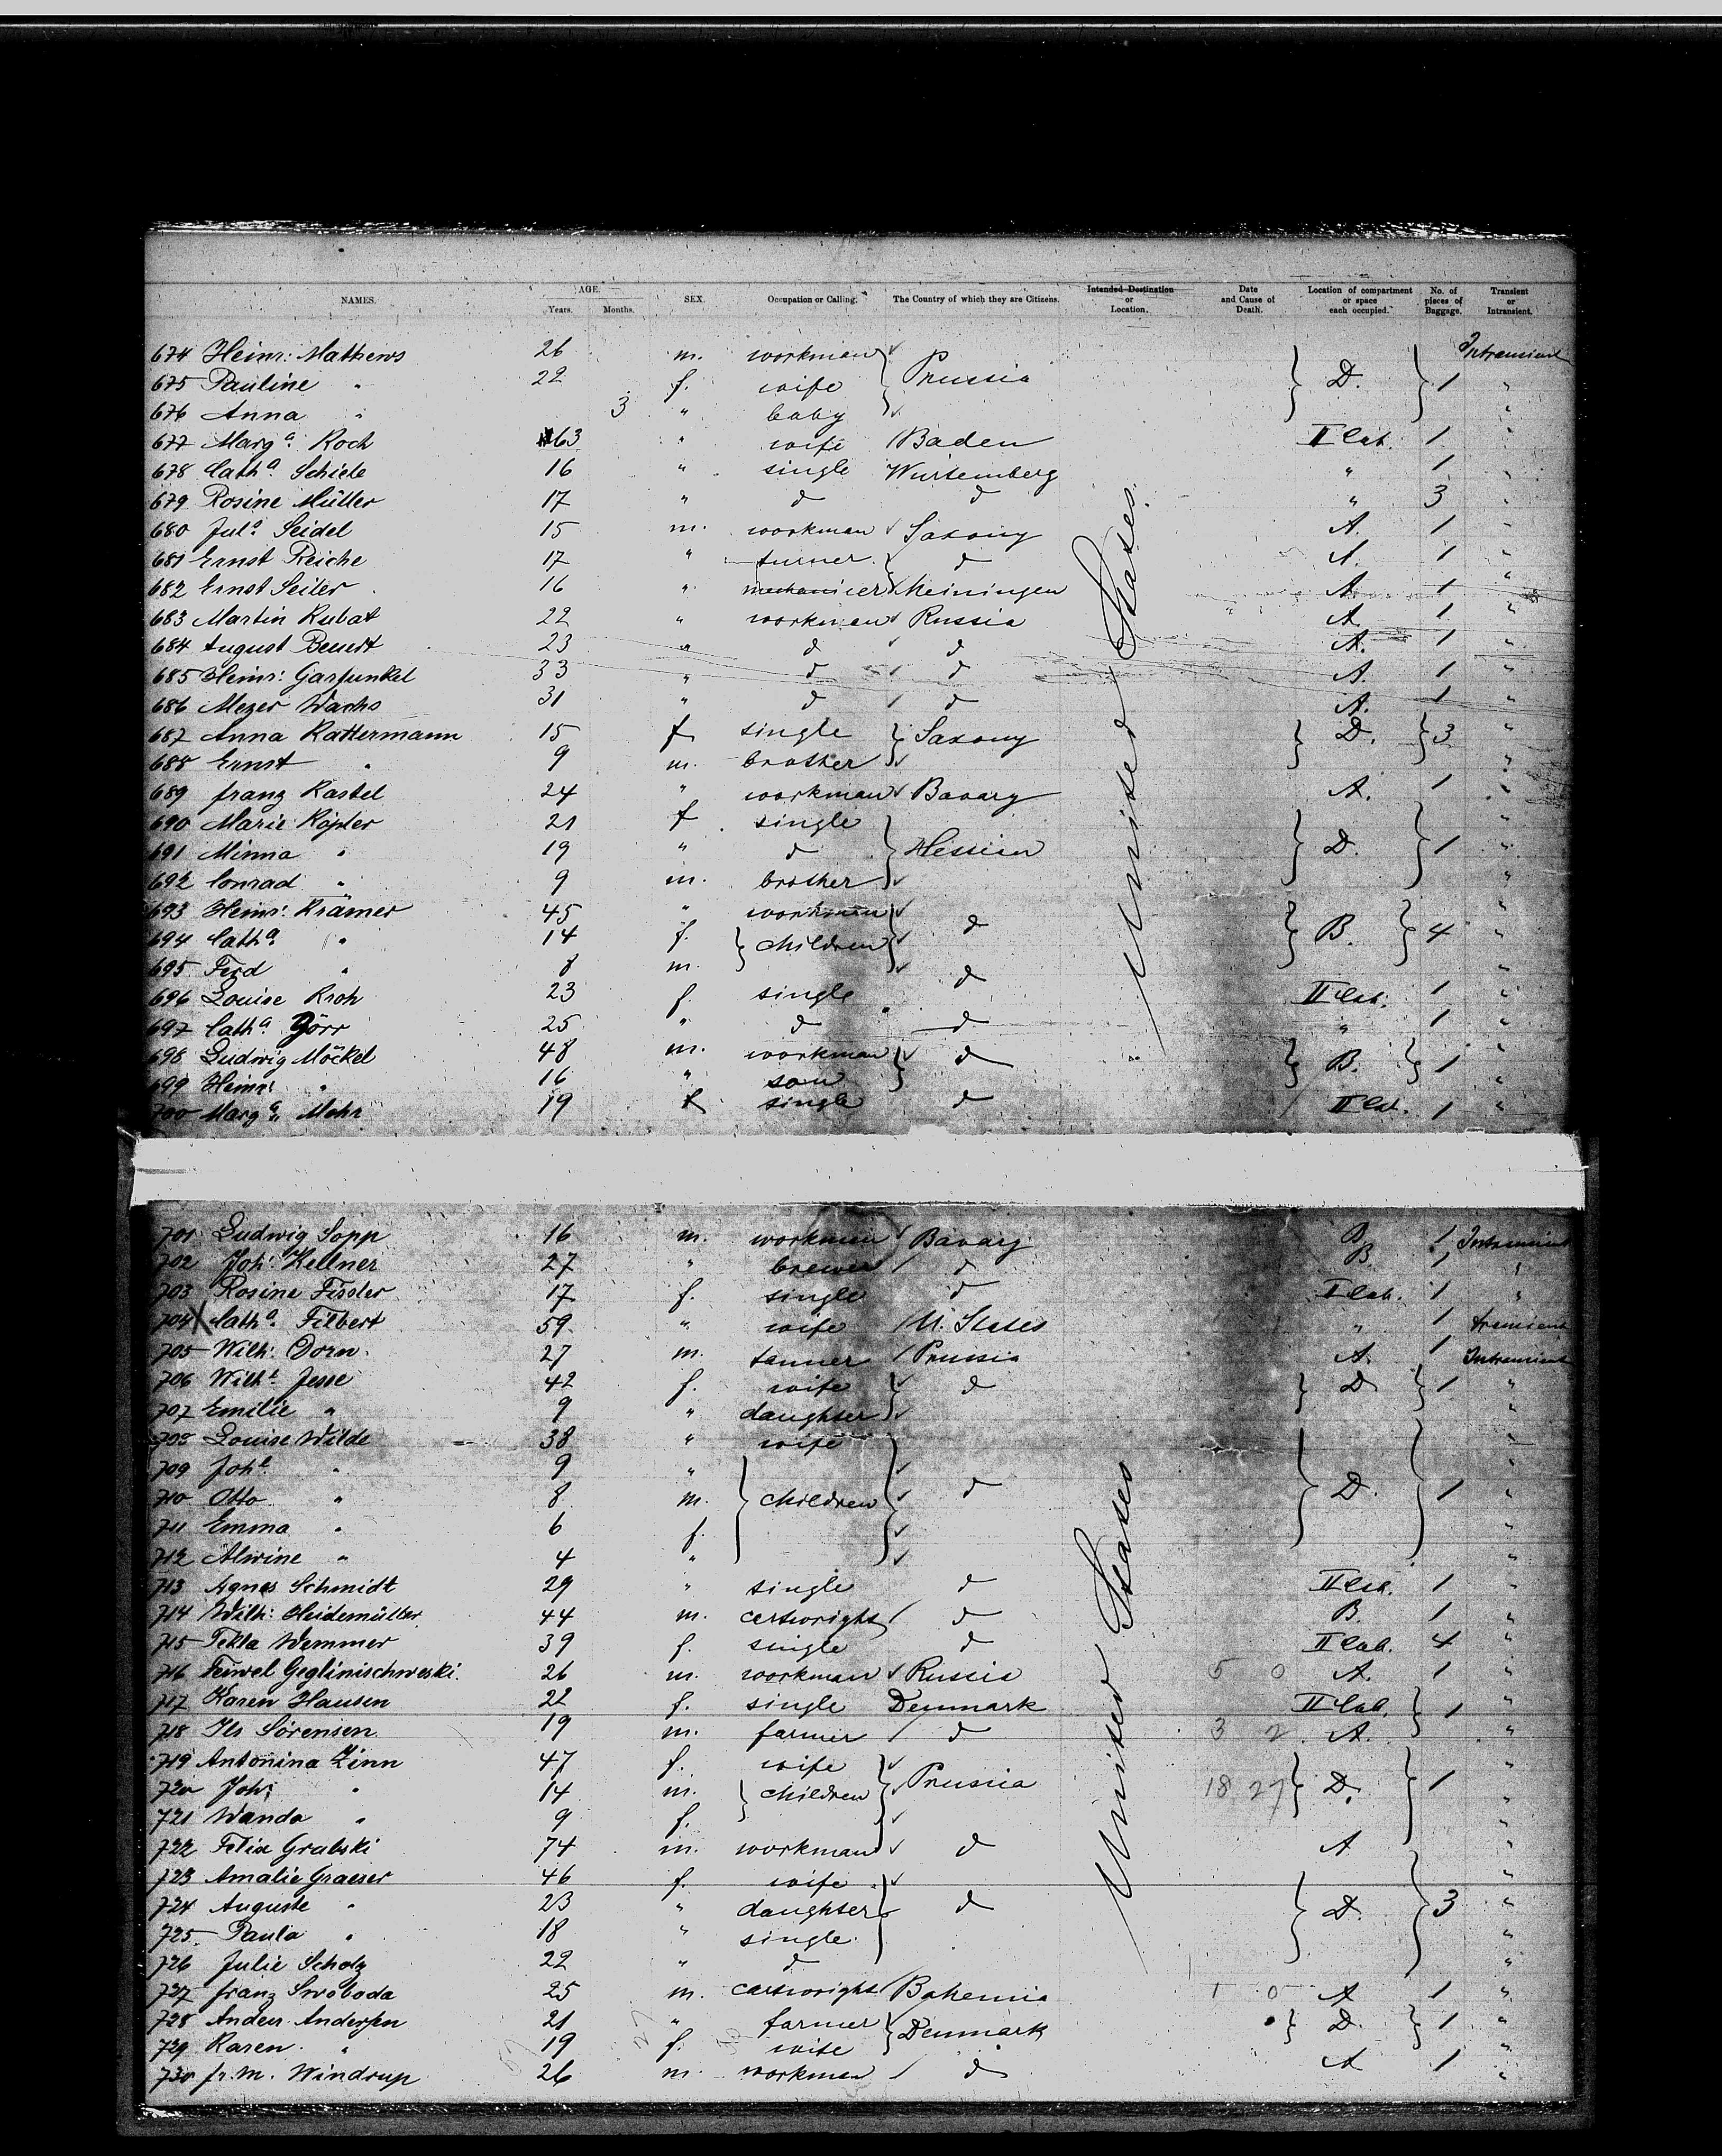 NAMES. AGE. Years. Months. SEX. Occupation or Calling. The Country of which they are Citizens. Intended Destination or Location. Date and Cause of Death. Location of compartment or space each occupied. No. of pieces of Baggage. Transient or Intransient.
674 Heinr: Mathews 26 m. workman Prussia D. 1 Intransient
675 Pauline " 22 f. wife "
676 Anna " 3 " baby "
677 Marg a. Koch 63 " wife Baden II Cab. 1 "
678 Cath a. Schiele 16 " single Würtemberg " 1 "
679 Rosine Müller 17 " d d " 3 "
680 Jul a. Seidel 15 m. workman Saxony A. 1 "
681 Ernst Reiche 17 " turner d A. 1 "
682 Ernst Seiler 16 " mechanicer Meiningen A. 1 "
683 Martin Kubat 22 " workman Russia A. 1 "
684 August Benett 23 " d d A. 1 "
685 Heinr: Garfunkel 33 " d d A. 1 "
686 Mezer Wachs 31 " d d A. 1 "
687 Anna Rattermann 15 f single Saxony D. 3 "
688 Ernst " 9 m. brother "
689 franz Kastel 24 " workman Bavary A. 1 "
690 MarieKöpler 21 f single Hessian D. 1 "
691 Minna " 19 " d "
692 Conrad " 9 m. brother "
693 Heinr: Krämer 45 " workman d B. 4 "
694 Cath a. " 14 f. children "
695 Ferd " 8 m. "
696 Louise Kroh 23 f. single d II Cab. 1 "
697 Cath a Görr 25 " d d " 1 "
698 Ludwig Möckel 48 m. workman d B. 1 "
699 Heinr: " 16 " son "
700 Marg a. Mohr 19 f single d II Cab. 1 "
United States.
701 Ludwig Sopp 16 m. workman Bavary B 1 Intransient
702 Joh: Kellner 27 " brewer d B. 1 "
703 Rosine Fissler 17 f. single d II Cab. 1 "
704 X Cath a. Filbert 59 " wife U. States " 1 transient
705 Wilh: Dorn 27 m. tanner Prussia A. 1 Intransient
706 Wilh e. Jesse 42 f. wife d D 1 "
707 Emilie " 9 " daughter "
708 Louise Wilde 38 " wife d D. 1 "
709 Joh e. " 9 " children "
710 Otto " 8 m. "
711 Emma " 6 f. "
712 Alwine " 4 " "
713 Agnes Schmidt 29 " single d II Cab. 1 "
714 Wilh: Heidemüller 44 m. cartwright d B. 1 "
715 Tekla Wemmer 39 f. single d II Cab. 4 "
716 Feiwel Geglinischweski 26 m. workman Russia 5 0 A. 1 "
717 Karen Hansen 22 f. single Denmark II Cab. 1 "
718 Ils Sörensen 19 m. farmer d 3 2 A. "
719 Antonina Zinn 47 f. wife Prussia 18, 27 D. 1 "
720 Joh: " 14 m. children "
721 Wanda " 9 f. "
722 Felix Grabski 74 m. workman d A "
723 Amalie Graeser 46 f. wife d D. 3 "
724 Auguste " 23 " daughter "
725 Paula " 18 " single "
726 Julie Scholz 22 " d "
727 franz Swoboda 25 m. cartwright Bohemia 1 0 A 1 "
728 Anders Andersen 21 " farmer Denmark D. 1 "
729 Karen " 19 f. wife "
730 fr. M. Windrup 26 m. workman d A 1 "
United States